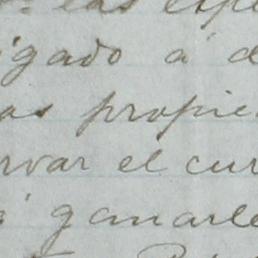 las espe
igado á d
as propie
rvar el cur
á ganarle